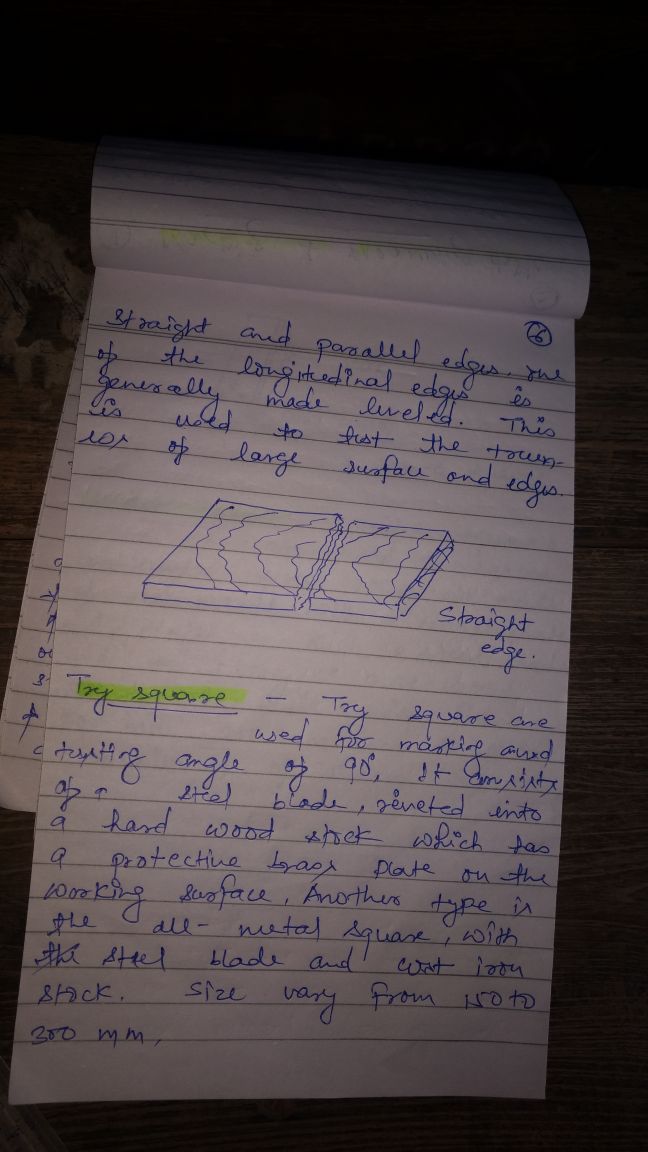 6
straight and parallel edges. one
of the longitudinal edges is
generally made leveled. This
is used to test the truen-
ess of large surface and edges.
Straight
edge.
Try square - Try square are
used for marking and
testing angle of 90°, It consists
of a steel blade, reveted into
a hard wood stock which has
a protective brass plate on the
working surface, Another type is
the all-metal square, with
the steel blade and cast iron
stock. Size vary from 150 to
300 mm,